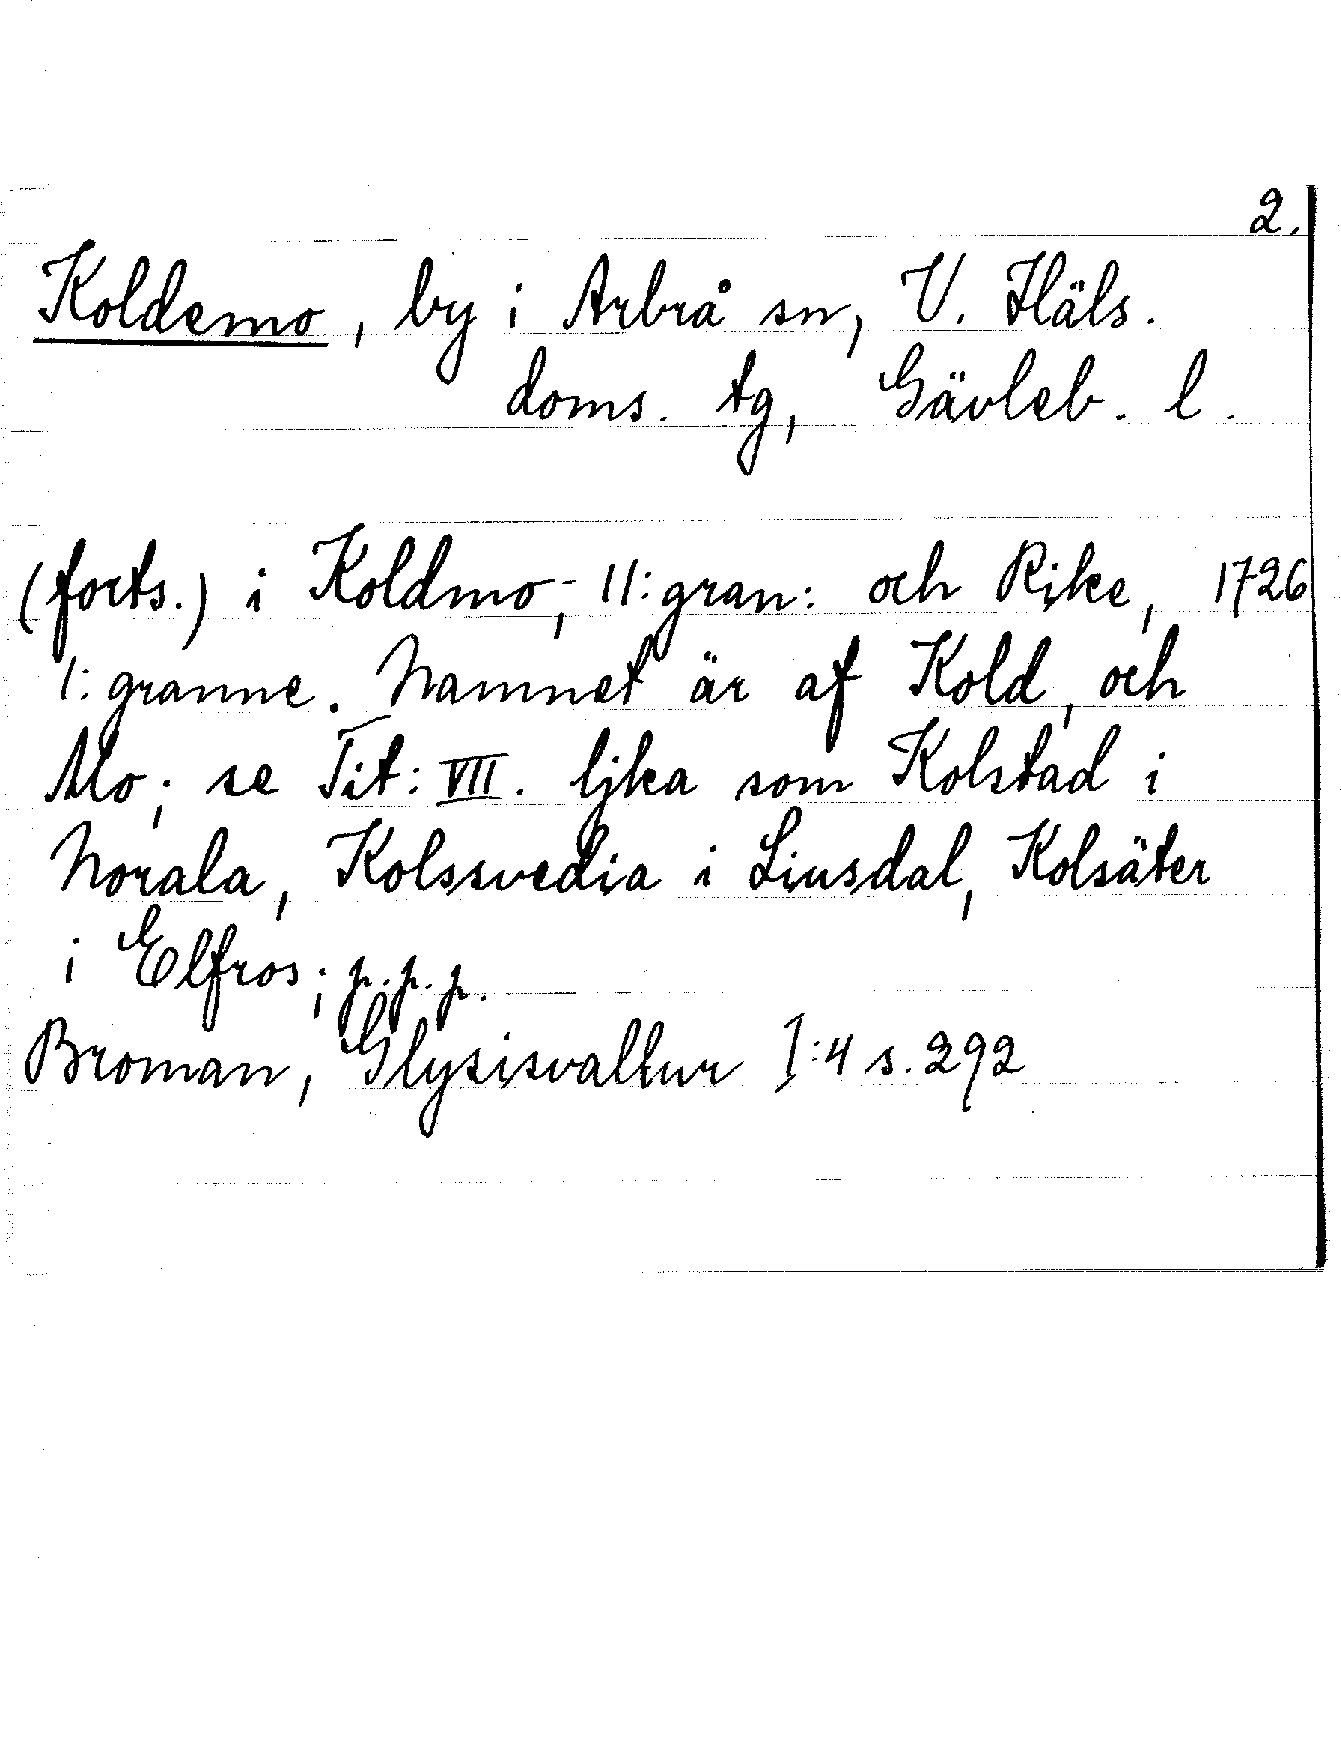 2.
Koldemo, by i Arbrå sn, V. Häls.
doms. tg, Gävleb. l.
(forts.) i Koldmo; 11:gran: och Rike, 1726
1:granne. Namnet är af Kold, och
Mo; se Tit: VII. ljka som Kolstad i
Norala, Kolssvedia i Liusdal, Kolsäter
i Elfros; p.p.p.
Broman, Glysisvallur I:4 s. 292